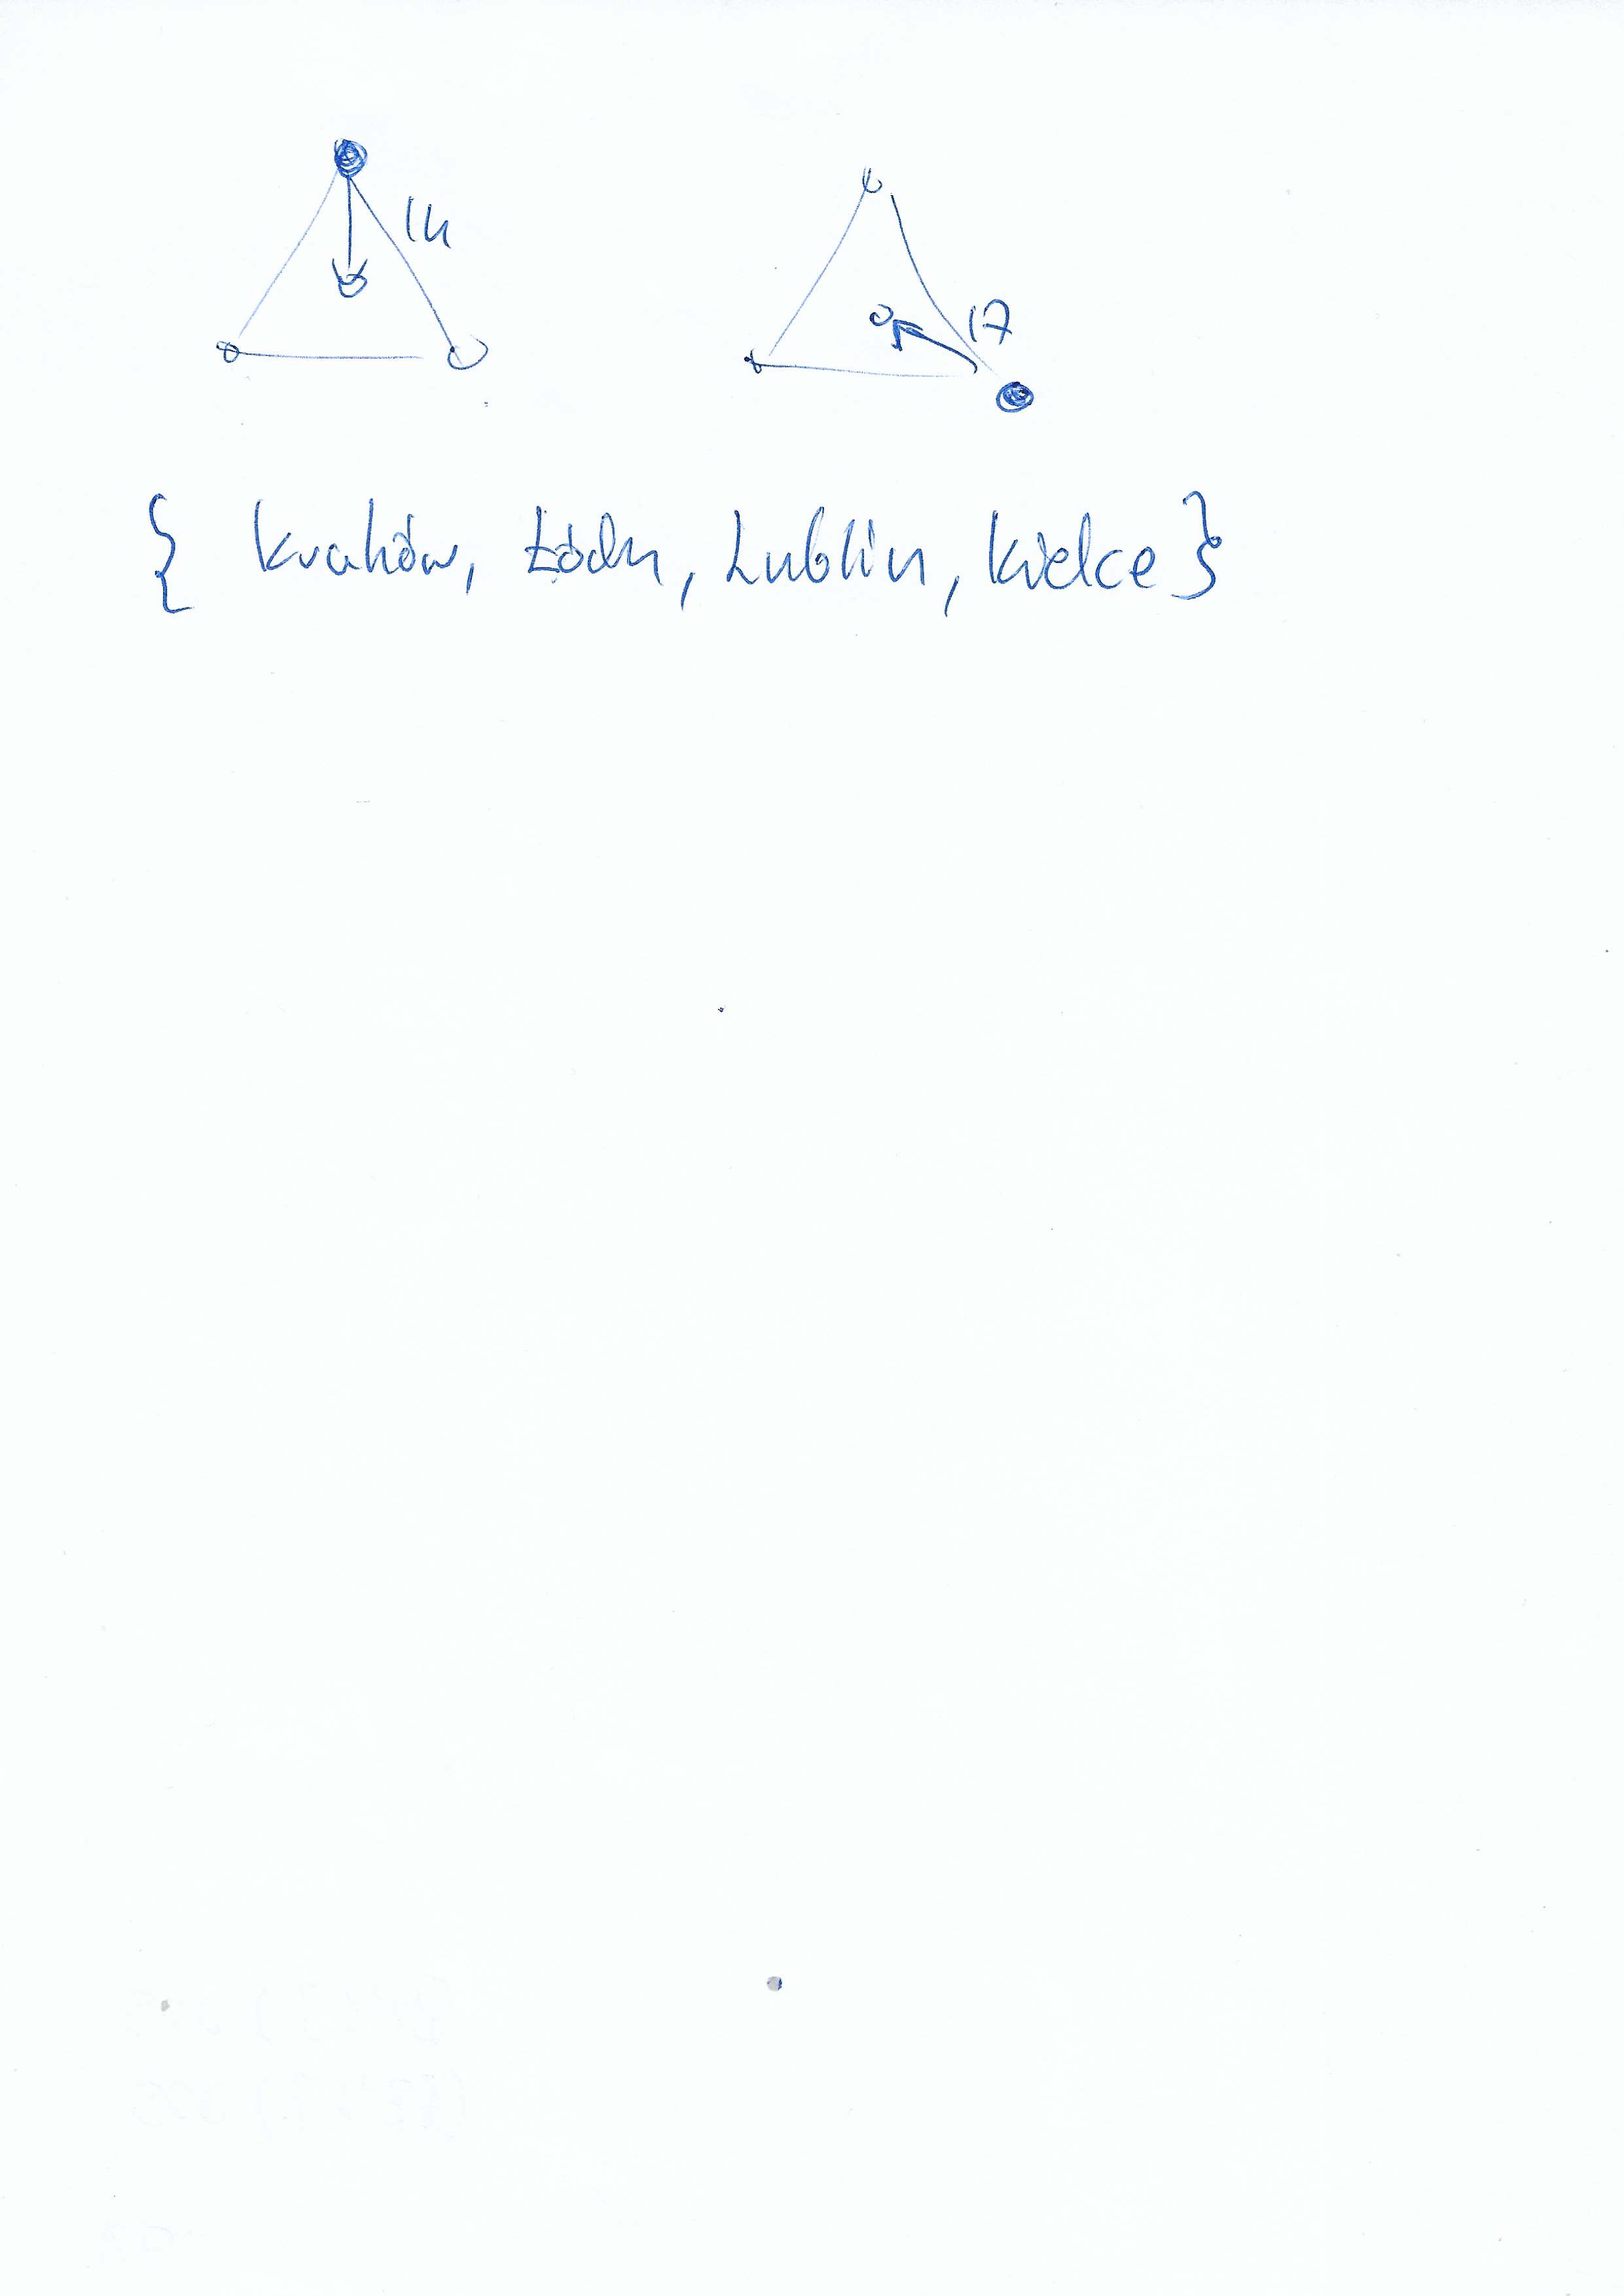 14
17
{ Kraków, Łódź, Lublin, Kielce }